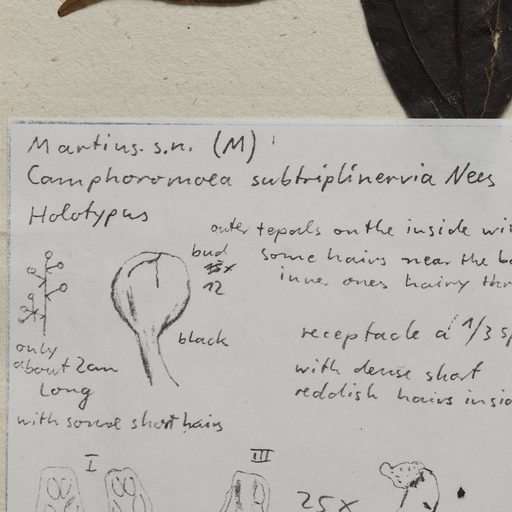 Martius s.n. (M)
Camphoromoea subtriplinervia Nees
Holotypus
outer tepals on the inside wi
bud some hairs near the b
x inner ones hairy thr
12
black
receptacle a 1/3 s
only
about 2cm
long
with dense short
reddish hairs insi
with some short hairs
I III
25x